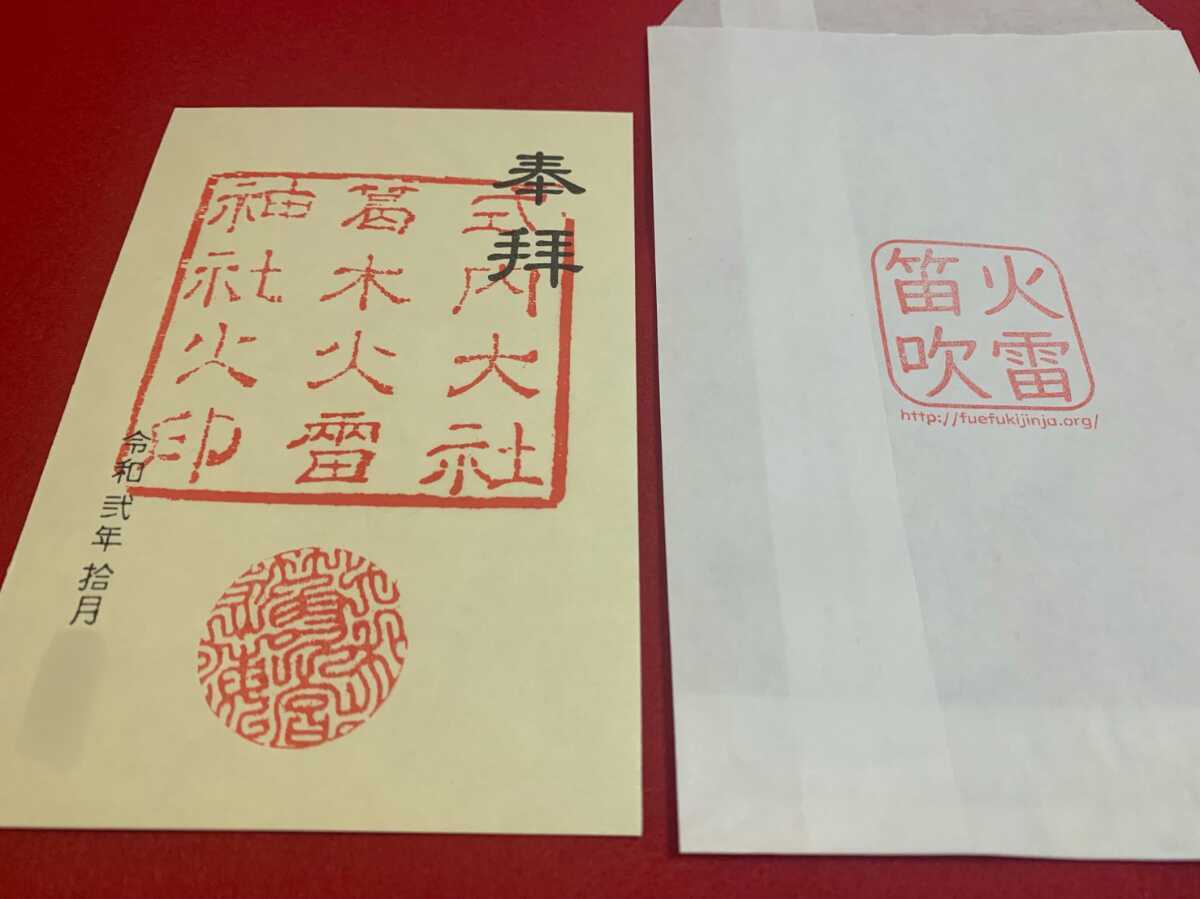 奉拝
式内大社
葛木火雷
神社火印
令和弐年拾月
火雷
笛吹
http://fuefukijinja.org/